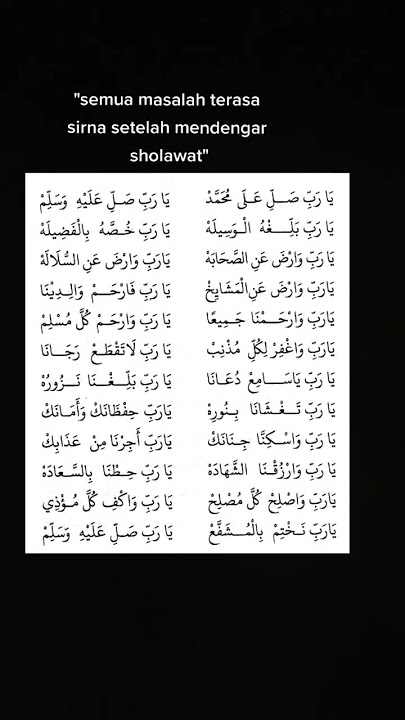 "semua masalah terasa
sirna setelah mendengar
sholawat"
يَا رَبِّ صَـلِّ عَـلَى مُحَمَّدْ يَا رَبِّ صَلِّ عَلَيْهِ وَسَلِّمْ
يَا رَبِّ بَلِّـغْهُ الْـوَسِيلَهْ يَا رَبِّ خُـصَّهُ بِالْفَضِيلَهْ
يَا رَبِّ وَارْضَ عَنِ الصَّحَابَهْ يَارَبِّ وَارْضَ عَنِ السُّلَالَهْ
يَا رَبِّ وَارْضَ عَنِ الْمَشَايِخْ يَا رَبِّ فَارْحَـمْ وَالِـدِيْنَا
يَارَبِّ وَارْحَـمْنَا جَـمِيعًا يَا رَبِّ وَارْحَمْ كُلَّ مُسْلِمْ
يَارَبِّ وَاغْفِرْ لِكُلِّ مُذْنِبْ يَا رَبِّ لَاتَقْطَـعْ رَجَـانَا
يَا رَبِّ يَاسَـامِعْ دُعَـانَا يَا رَبِّ بَلِّـغْـنَا نَـزُورُهْ
يَا رَبِّ تَـغْـشَانَا بِـنُورِهْ يَارَبِّ حِفْظَانَكْ وَأَمَـانَكْ
يَا رَبِّ وَاسْـكِنَّا جِـنَانَكْ يَارَبِّ أَجِرْنَا مِنْ عَذَابِكْ
يَا رَبِّ وَارْزُقْـنَا الشَّهَادَهْ يَا رَبِّ حِـطْنَا بِالسَّـعَادَهْ
يَارَبِّ وَاصْلِحْ كُلَّ مُصْلِحْ يَا رَبِّ وَاكْفِ كُلَّ مُـؤْذِي
يَارَبِّ نَـخْتِمْ بِالْمُـشَفَّعْ يَا رَبِّ صَـلِّ عَلَيْهِ وَسَلِّمْ